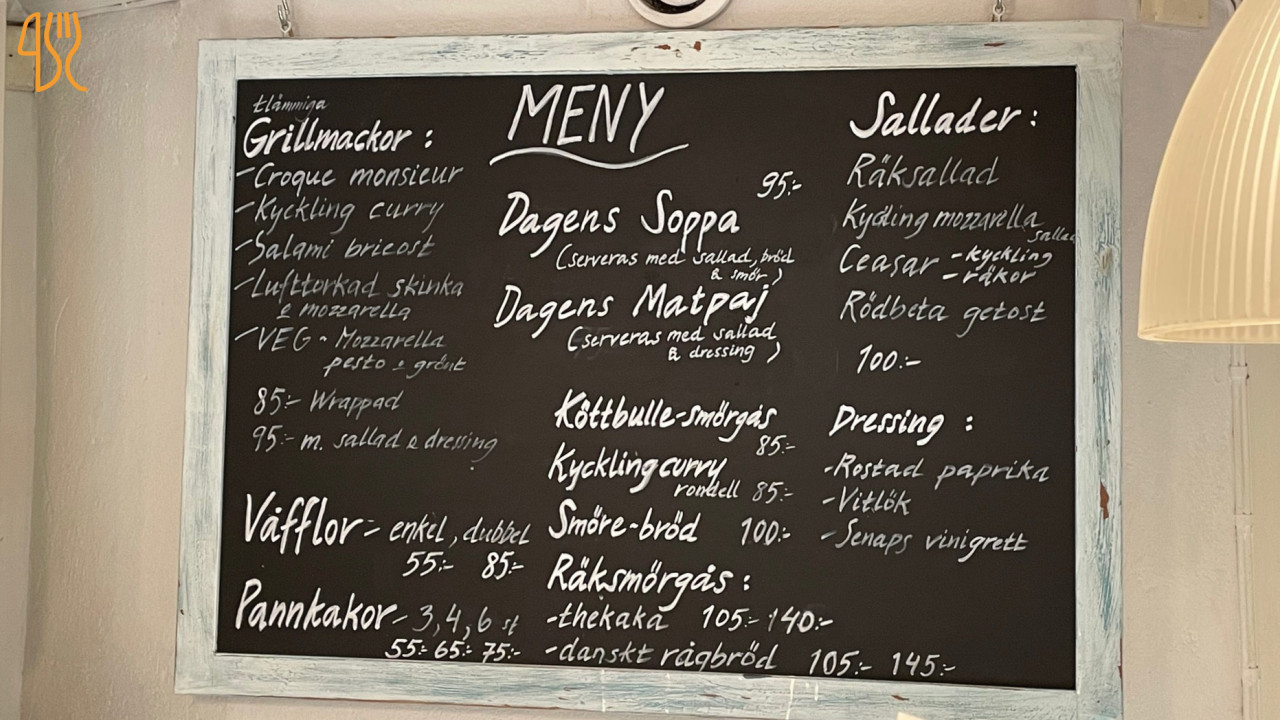 tlämmiga
Grillmackor :
- Croque monsieur
- Kyckling curry
- Salami brieost
- Lufttorkad skinka
& mozzarella
- VEG - Mozzarella
pesto & grönt
85:- Wrappad
95:- m. sallad & dressing
Våfflor - enkel, dubbel
55:- 85:-
Pannkakor - 3, 4, 6 st
55:- 65:- 75:-
MENY
95:-
Dagens Soppa
(serveras med sallad, bröd
& smör)
Dagens Matpaj
(serveras med sallad
& dressing)
Köttbulle-smörgås
85:-
Kycklingcurry
rondell 85:-
Smörre-bröd 100:-
Räksmörgås :
- thekaka 105:- 140:-
- danskt rågbröd 105:- 145:-
Sallader :
Räksallad
Kyckling mozzarella
sallad
Ceasar - kyckling
- räkor
Rödbeta getost
100:-
Dressing :
- Rostad paprika
- Vitlök
- Senaps vinigrett